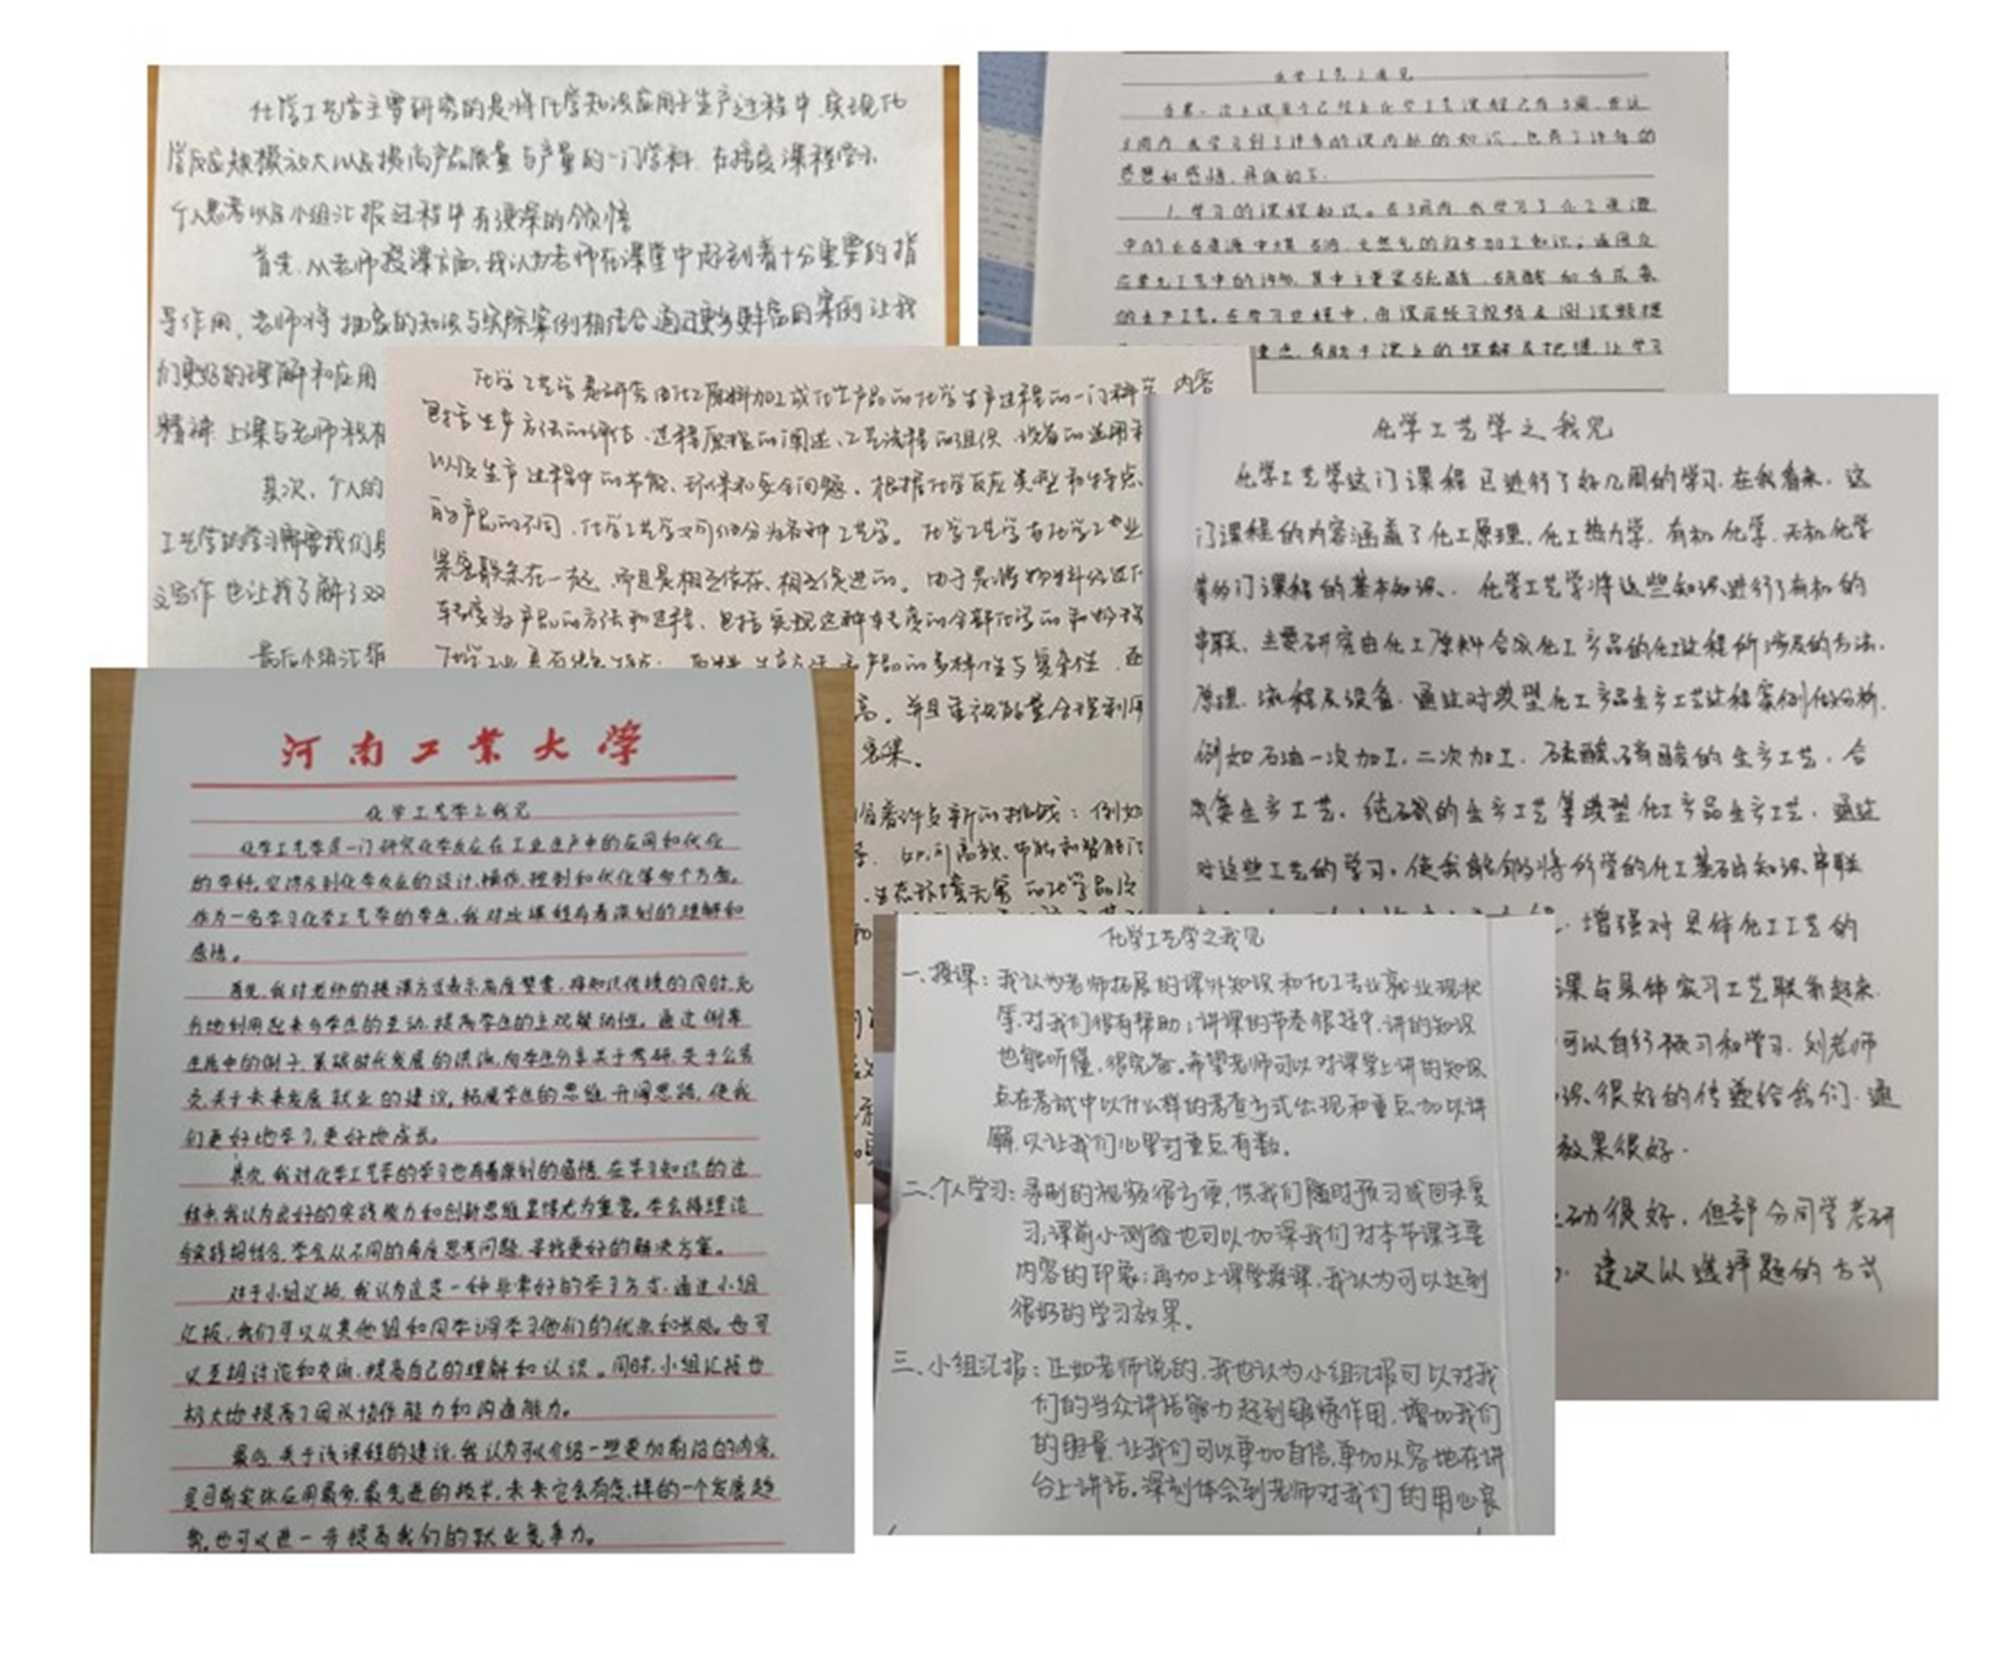 化学工艺学主要研究的是将化学知识应用于生产过程中,实现化
学反应规模放大以及提高产品质量与产量的一门学科.在接受课程学习
个人思考以及小组汇报过程中有很深的领悟
首先,从老师授课方面,我认为老师在课堂中起到着十分重要的指
导作用,老师将抽象的知识与实际案例相结合,通过更多丰富的案例让我
们更好的理解和应用
精神.上课与老师积极
其次、个人的
工艺学的学习需要我们具
文写作也让我了解了双
最后小组汇报
化学工艺之我见
3周内我学习到了许多的课内外的知识,也有了许多的
感想和感悟,具体如下.
1.学习的课程知识。在3周内我学习了化工资源
的生产工艺。在学习过程中,
重点,有助于课上的理解及把握,让学习
化学工艺学是研究由化工原料加工成化工产品的化学生产过程的一门科学,内容
包括生产方法的评估、过程原理的阐述、工艺流程的组织、设备的选用和
以及生产过程中的节能、环保和安全问题。根据化学反应类型和特点、
的产品的不同,化学工艺学又可细分为各种工艺学。化学工艺学与化学工业
紧密联系在一起,而且是相互依存、相互促进的。由于是将物料经过化
转变为产品的方法和过程、包括实现这种转变的全部化学的和物理
产品的多样性与复杂性
高,并且重视能量合理利用
密集。
着许多新的挑战:例如
如何高效、节能和智能
生态环境无害的化学品
化学工艺学之我见
化学工艺学这门课程已进行了好几周的学习.在我看来,这
门课程的内容涵盖了化工原理,化工热力学,有机化学,无机化学
等多门课程的基本知识.化学工艺学将这些知识进行了有机的
串联,主要研究由化工原料合成化工产品的化工过程所涉及的方法.
原理.流程及设备.通过对典型化工产品生产工艺过程案例的分析.
例如石油一次加工,二次加工.硫酸,硝酸的生产工艺,合
成氨生产工艺,纯碱的生产工艺等典型化工产品生产工艺,通过
对这些工艺的学习,使我能够将所学的化工基础知识串联
增强对具体化工工艺的
课与具体实习工艺联系起来.
可以自行预习和学习.刘老师
识很好的传递给我们.通
效果很好.
互动很好,但部分同学考研
建议以选择题的方式
河南工业大学
化学工艺学之我见
化学工艺学是一门研究化学反应在工业生产中的应用和优化
的学科,它涉及到化学反应的设计、操作、控制和优化等多个方面。
作为一名学习化学工艺学的学生,我对此课程有着深刻的理解和
感悟。
首先,我对老师的授课方式表示高度赞赏,将知识传授的同时,充
分地利用起来与学生的互动,提高学生的主观能动性。通过例举
生活中的例子,紧跟时代发展的洪流,向学生分享关于考研,关于公务
员,关于未来发展就业的建议,拓展学生的思维,开阔思路,使我
们更好地学习,更好地成长。
其次,我对化学工艺学的学习也有着深刻的感悟,在学习知识的过
程中,我认为良好的实践能力和创新思维显得尤为重要。学会将理论
与实践相结合,学会从不同的角度思考问题,寻找更好的解决方案。
对于小组汇报,我认为这是一种非常好的学习方式,通过小组
汇报,我们可以从其他组和同学间学习他们的优点和长处。也可
以互相讨论和交流,提高自己的理解和认识。同时,小组汇报也
极大地提高了团队协作能力和沟通能力。
最后,关于该课程的建议,我认为可以介绍一些更加前沿的内容,
是目前实际应用最多,最先进的技术,未来它会有怎样的一个发展趋
势,也可以进一步提高我们的就业竞争力。
化学工艺学之我见
一、授课:我认为老师拓展的课外知识和化工专业就业现状
等,对我们很有帮助;讲课的节奏很适中,讲的知识
也能听懂,很完备。希望老师可以对课堂上讲的知识
点在考试中以什么样的考查方式出现和重点加以讲
解,以让我们心里对重点有数。
二、个人学习:录制的视频很方便,供我们随时预习或回头复
习,课前小测验也可以加深我们对本节课主要
内容的印象;再加上课堂授课,我认为可以起到
很好的学习效果。
三、小组汇报:正如老师说的,我也认为小组汇报可以对我
们的当众讲话能力起到锻炼作用,增加我们
的胆量,让我们可以更加自信,更加从容地在讲
台上讲话。深刻体会到老师对我们的用心良